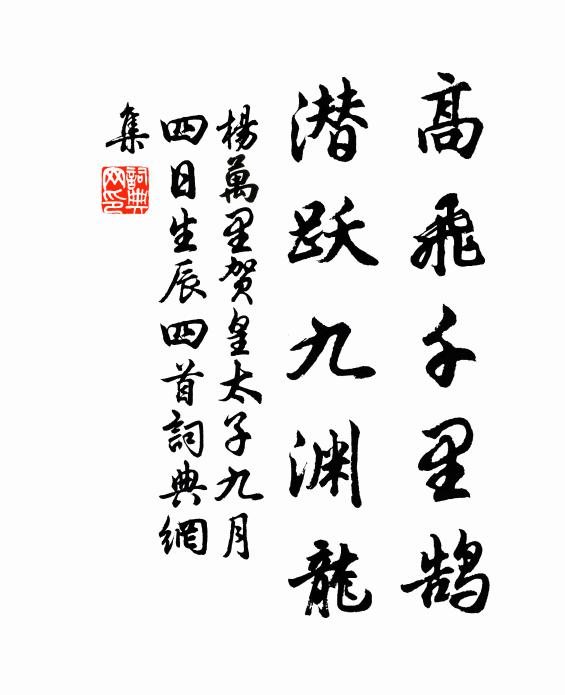 高飛千里鹄
潜跃九渊龍
楊萬里贺皇太子九月
四日生辰四首詞典網
集
詞典
网印